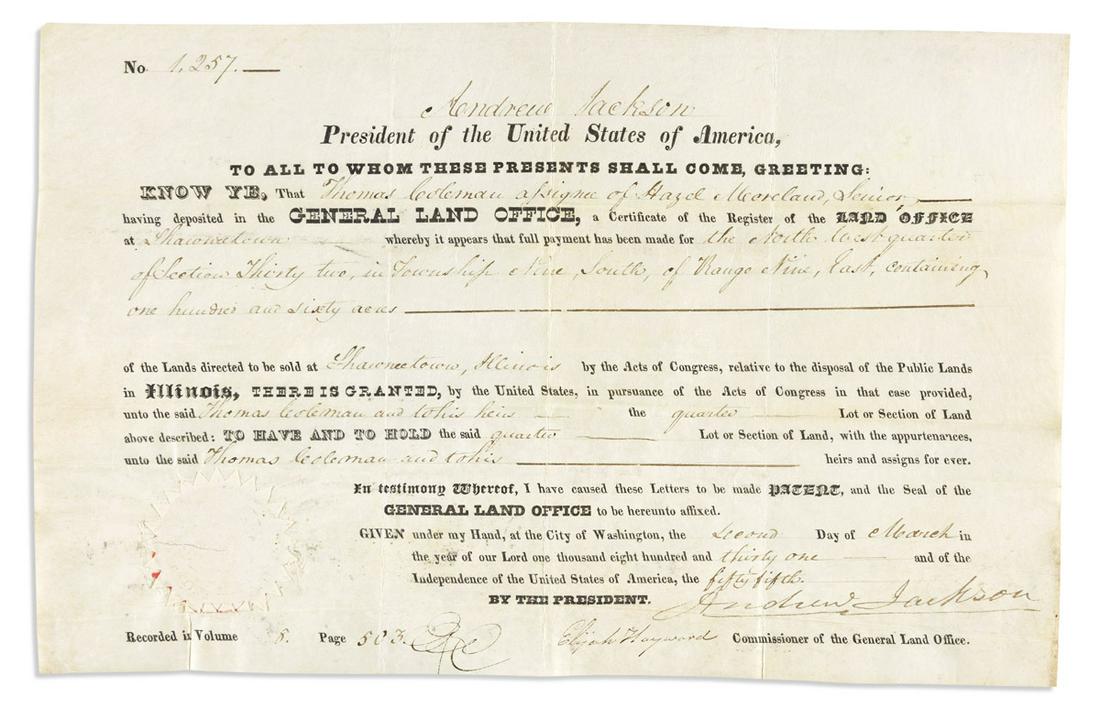 No. 1,257.
Andrew Jackson
President of the United States of America,
TO ALL TO WHOM THESE PRESENTS SHALL COME, GREETING:
KNOW YE, That Thomas Coleman assignee of Hazel Moreland, Senior,
having deposited in the GENERAL LAND OFFICE, a Certificate of the Register of the LAND OFFICE
at Shawneetown whereby it appears that full payment has been made for the North West quarter
of Section Thirty two, in Township Nine, South, of Range Nine, East, containing,
one hundred and sixty acres
of the Lands directed to be sold at Shawneetown, Illinois by the Acts of Congress, relative to the disposal of the Public Lands
in Illinois, THERE IS GRANTED, by the United States, in pursuance of the Acts of Congress in that case provided,
unto the said Thomas Coleman and to his heirs the quarter Lot or Section of Land
above described: TO HAVE AND TO HOLD the said quarter Lot or Section of Land, with the appurtenances,
unto the said Thomas Coleman and to his heirs and assigns for ever.
In testimony Whereof, I have caused these Letters to be made PATENT, and the Seal of the
GENERAL LAND OFFICE to be hereunto affixed.
GIVEN under my Hand, at the City of Washington, the second Day of March in
the year of our Lord one thousand eight hundred and thirty one and of the
Independence of the United States of America, the fifty fifth.
BY THE PRESIDENT. Andrew Jackson
Recorded in Volume Page 503. Elijah Hayward Commissioner of the General Land Office.